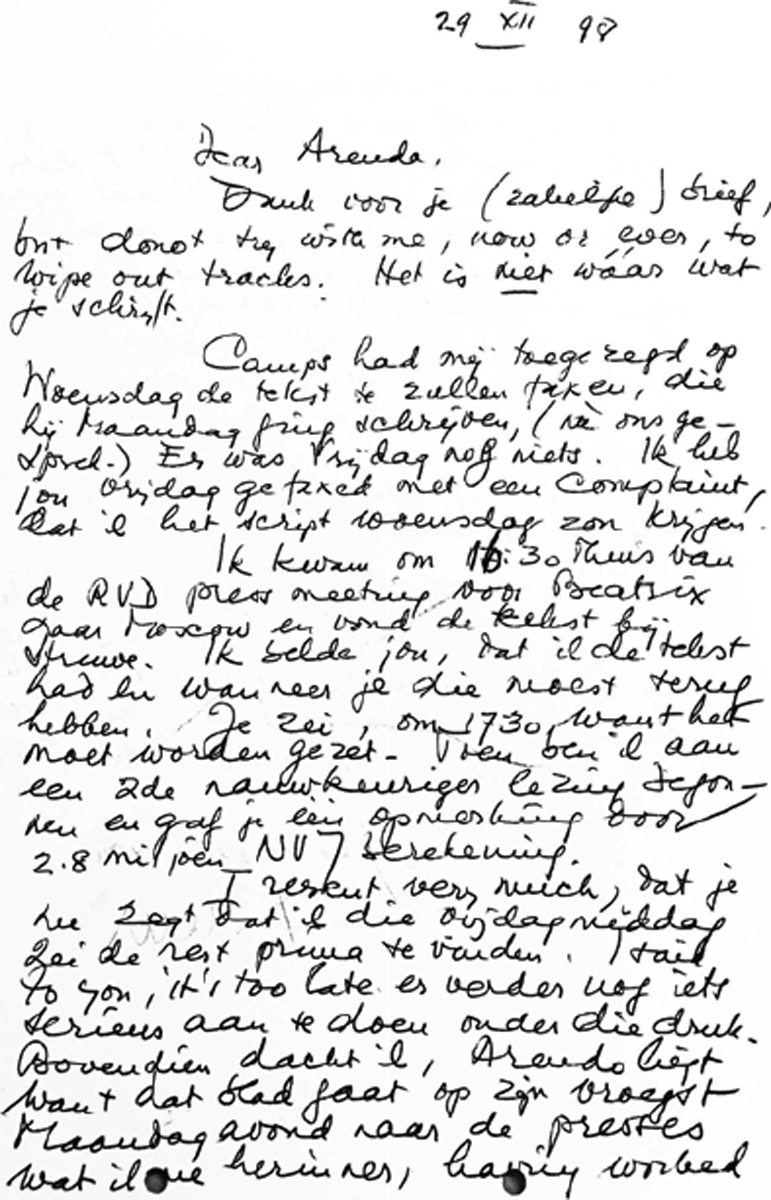 29 XII 98
Dear Arendo,
Dank voor je (zakelijke) brief,
but donot try with me, now or ever, to
wipe out tracks. Het is niet wáár wat
je schrijft.
Camps had mij toegezegd op
Woensdag de tekst te zullen faxen, die
hij Maandag ging schrijven, (nà ons ge-
sprek.) Er was Vrijdag nog niets. Ik heb
jou vrijdag gefaxed met een Complaint,
dat ik het script woensdag zou krijgen.
Ik kwam om 16:30 thuis van
de RVD press meeting voor Beatrix
naar Moscow en vond de tekst bij
Struwe. Ik belde jou, dat ik de tekst
had en wanneer je die moest terug
hebben. Je zei, om 1730, want het
moet worden gezet - Toen ben ik aan
een 2de nauwkeuriger lezing begon-
nen en gaf je één opmerking door
2.8 miljoen NVJ berekening.
I resent very much, dat je
nu zegt dat ik die vrijdagmiddag
zei de rest prima te vinden. I said
to you, it's too late er verder nog iets
serieus aan te doen onder die druk.
Bovendien dacht ik, Arendo liegt
want dat blad gaat op zijn vroegst
Maandagavond naar de presses
wat ik me herinner, having worked